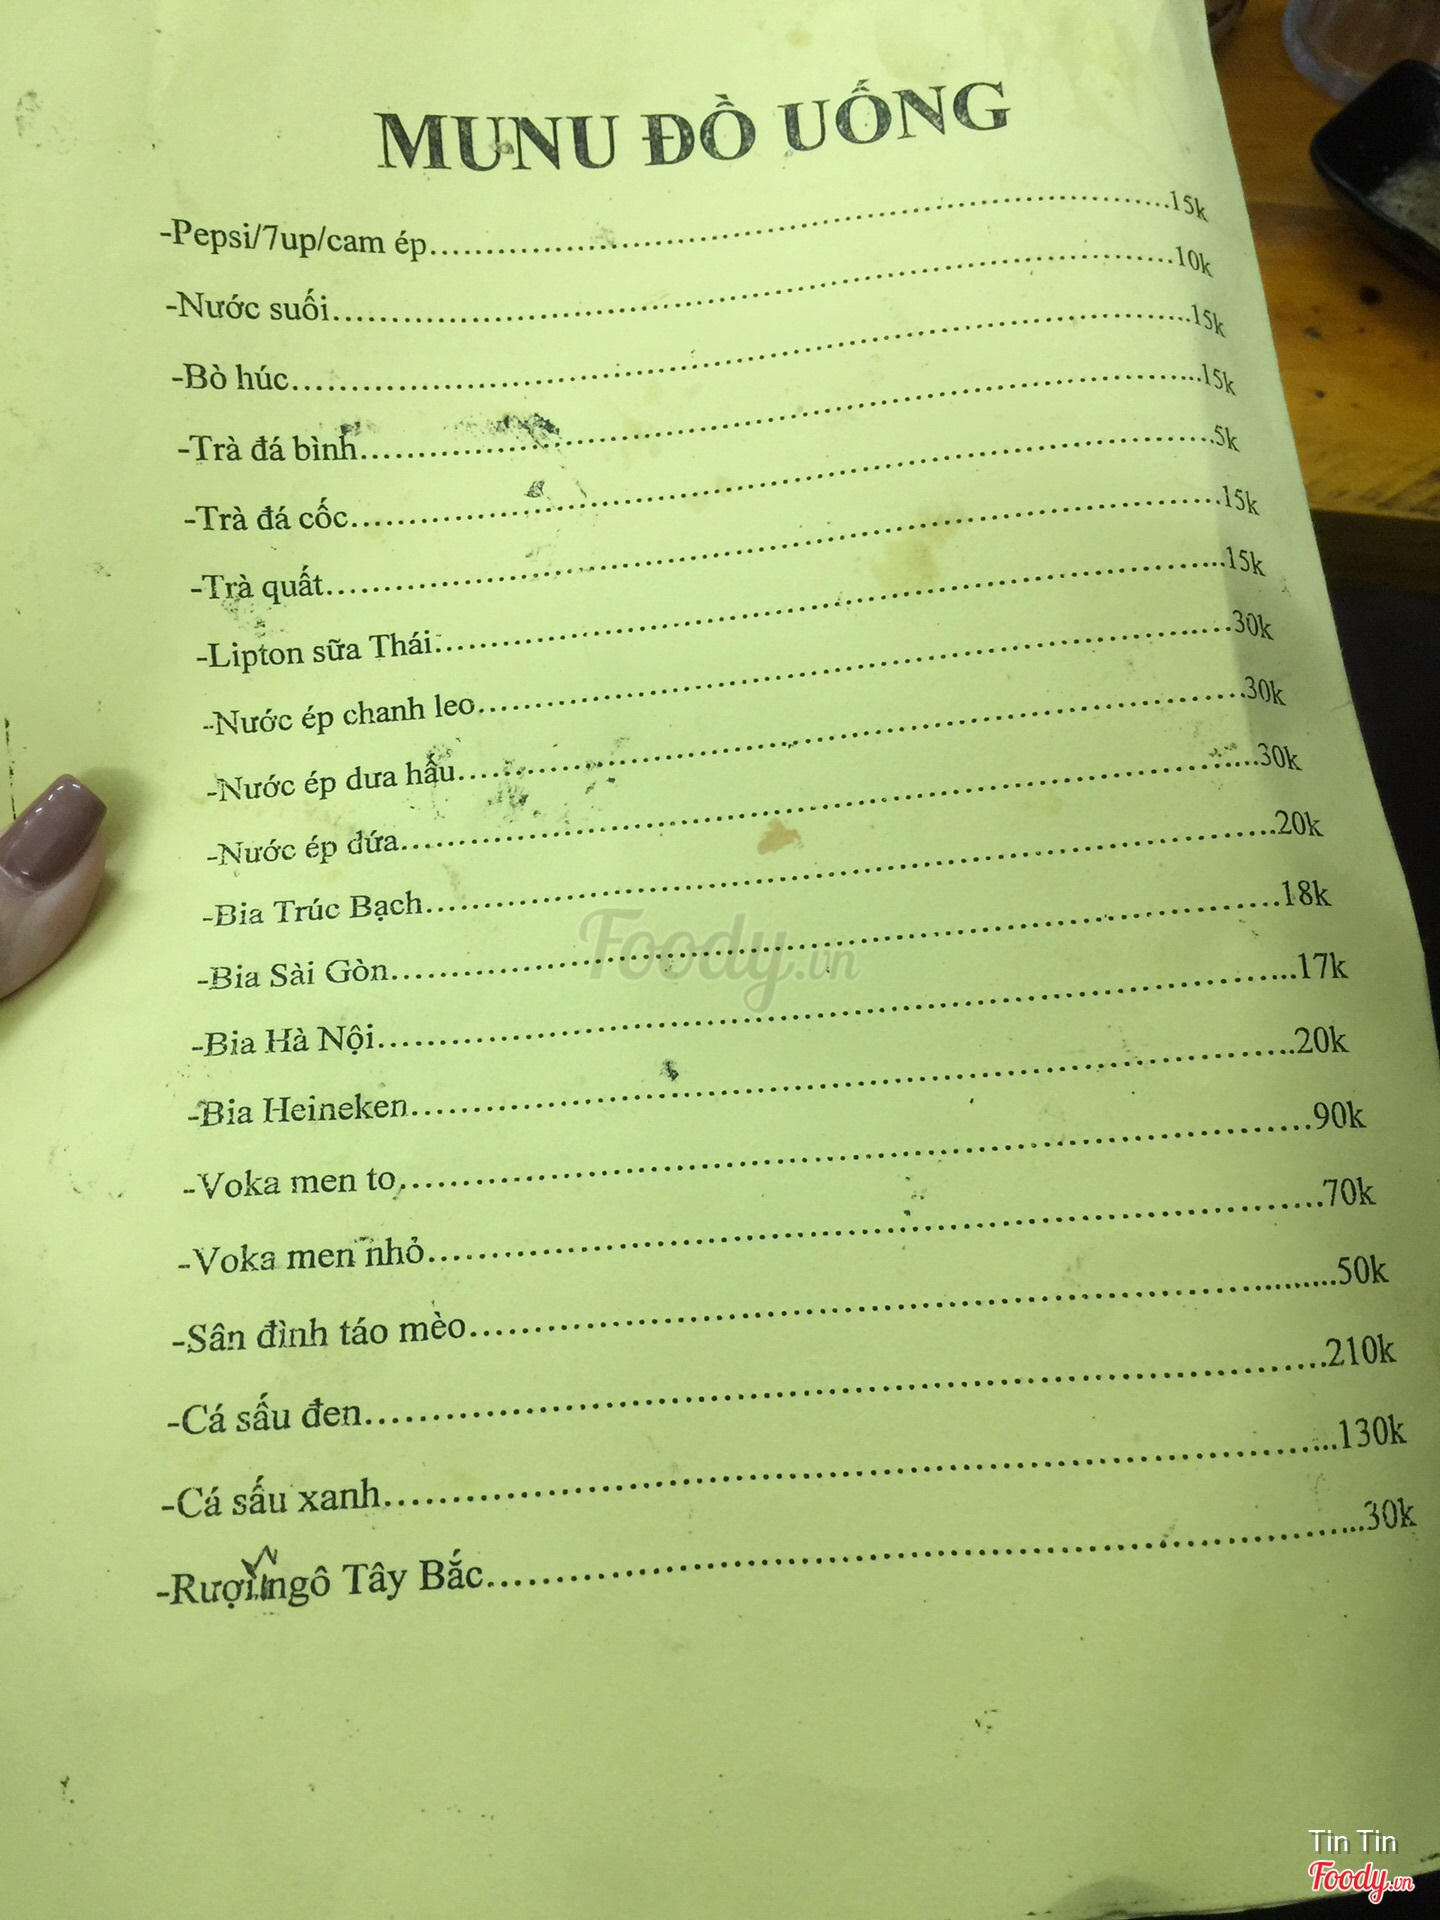 MUNU ĐỒ UỐNG
-Pepsi/7up/cam ép.....15k
-Nước suối.....10k
-Bò húc.....15k
-Trà đá bình.....15k
-Trà đá cốc.....5k
-Trà quất.....15k
-Lipton sữa Thái.....15k
-Nước ép chanh leo.....30k
-Nước ép dưa hấu.....30k
-Nước ép dứa.....30k
-Bia Trúc Bạch.....20k
-Bia Sài Gòn.....18k
-Bia Hà Nội.....17k
-Bia Heineken.....20k
-Voka men to.....90k
-Voka men nhỏ.....70k
-Sân đình táo mèo.....50k
-Cá sấu đen.....210k
-Cá sấu xanh.....130k
-Rượi ngô Tây Bắc.....30k
Foody.vn
Tin Tin
Foody.vn